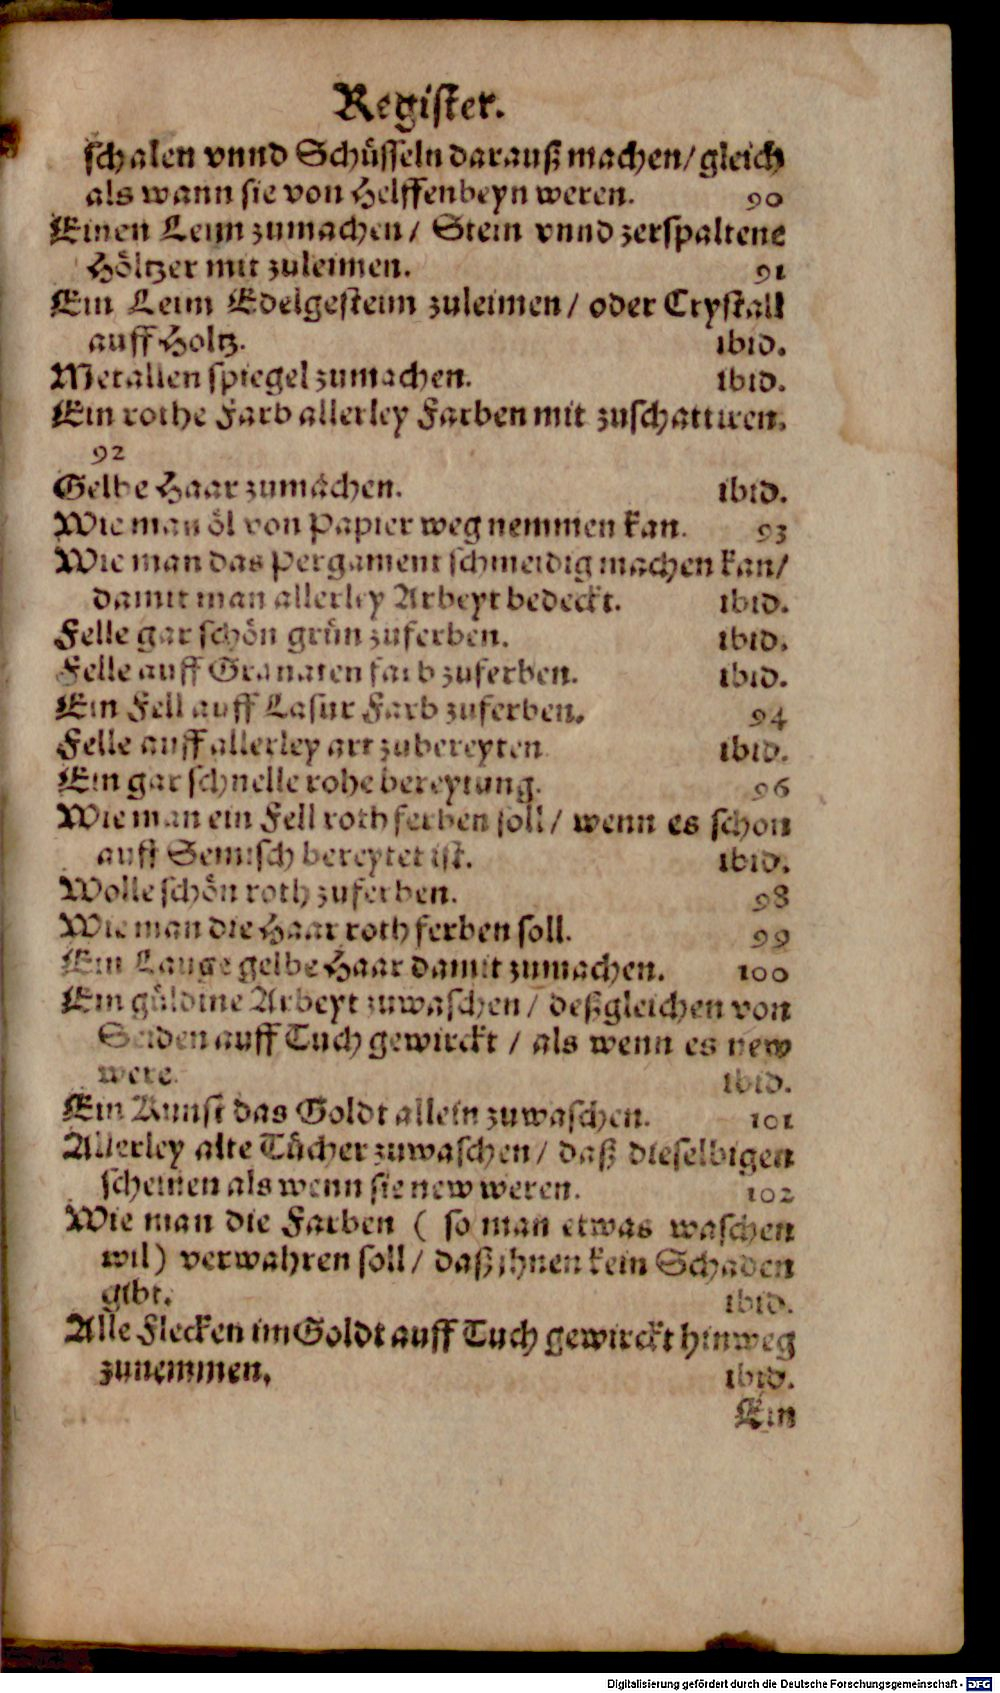 Register.
schalen vnnd Schüsseln darauß machen/ gleich
als wann sie von Helffenbeyn weren. 90
Einen Leim zumachen/ Stein vnnd zerspaltene
Höltzer mit zuleimen. 91
Ein Leim Edelgesteim zuleimen/ oder Crystall
auff Holtz. ibid.
Metallen spiegel zumachen. ibid.
Ein rothe Farb allerley Farben mit zuschattiren.
92
Gelbe Haar zumachen. ibid.
Wie man öl von Papier weg nemmen kan. 93
Wie man das Pergament schmeidig machen kan/
damit man allerley Arbeyt bedeckt. ibid.
Felle gar schön grün zuferben. ibid.
Felle auff Granaten farb zuferben. ibid.
Ein Fell auff Lasur Farb zuferben. 94
Felle auff allerley art zubereyten ibid.
Ein gar schnelle rohe bereytung. 96
Wie man ein Fell roth ferben soll/ wenn es schon
auff Semisch bereytet ist. ibid.
Wolle schön roth zuferben. 98
Wie man die Haar roth ferben soll. 99
Ein Lauge gelbe Haar damit zumachen. 100
Ein güldine Arbeyt zuwaschen/ deßgleichen von
Seiden auff Tuch gewirckt/ als wenn es new
were. ibid.
Ein Kunst das Goldt allein zuwaschen. 101
Allerley alte Tücher zuwaschen/ daß dieselbigen
scheinen als wenn sie new weren. 102
Wie man die Farben ( so man etwas waschen
wil) verwahren soll/ daß ihnen kein Schaden
gibt. ibid.
Alle Flecken im Goldt auff Tuch gewirckt hinweg
zunemmen. ibid.
Ein
Digitalisierung gefördert durch die Deutsche Forschungsgemeinschaft - DFG